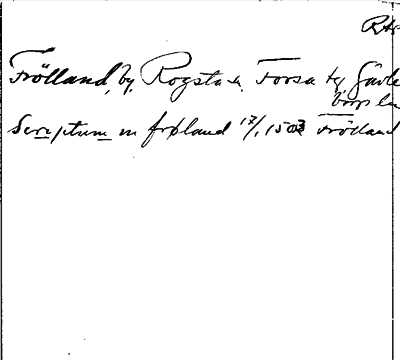 Frölland, by, Rogsta sn, Forsa tg, Gävle
borgs län
Scriptum in frøland 17/1 1503 Frölland